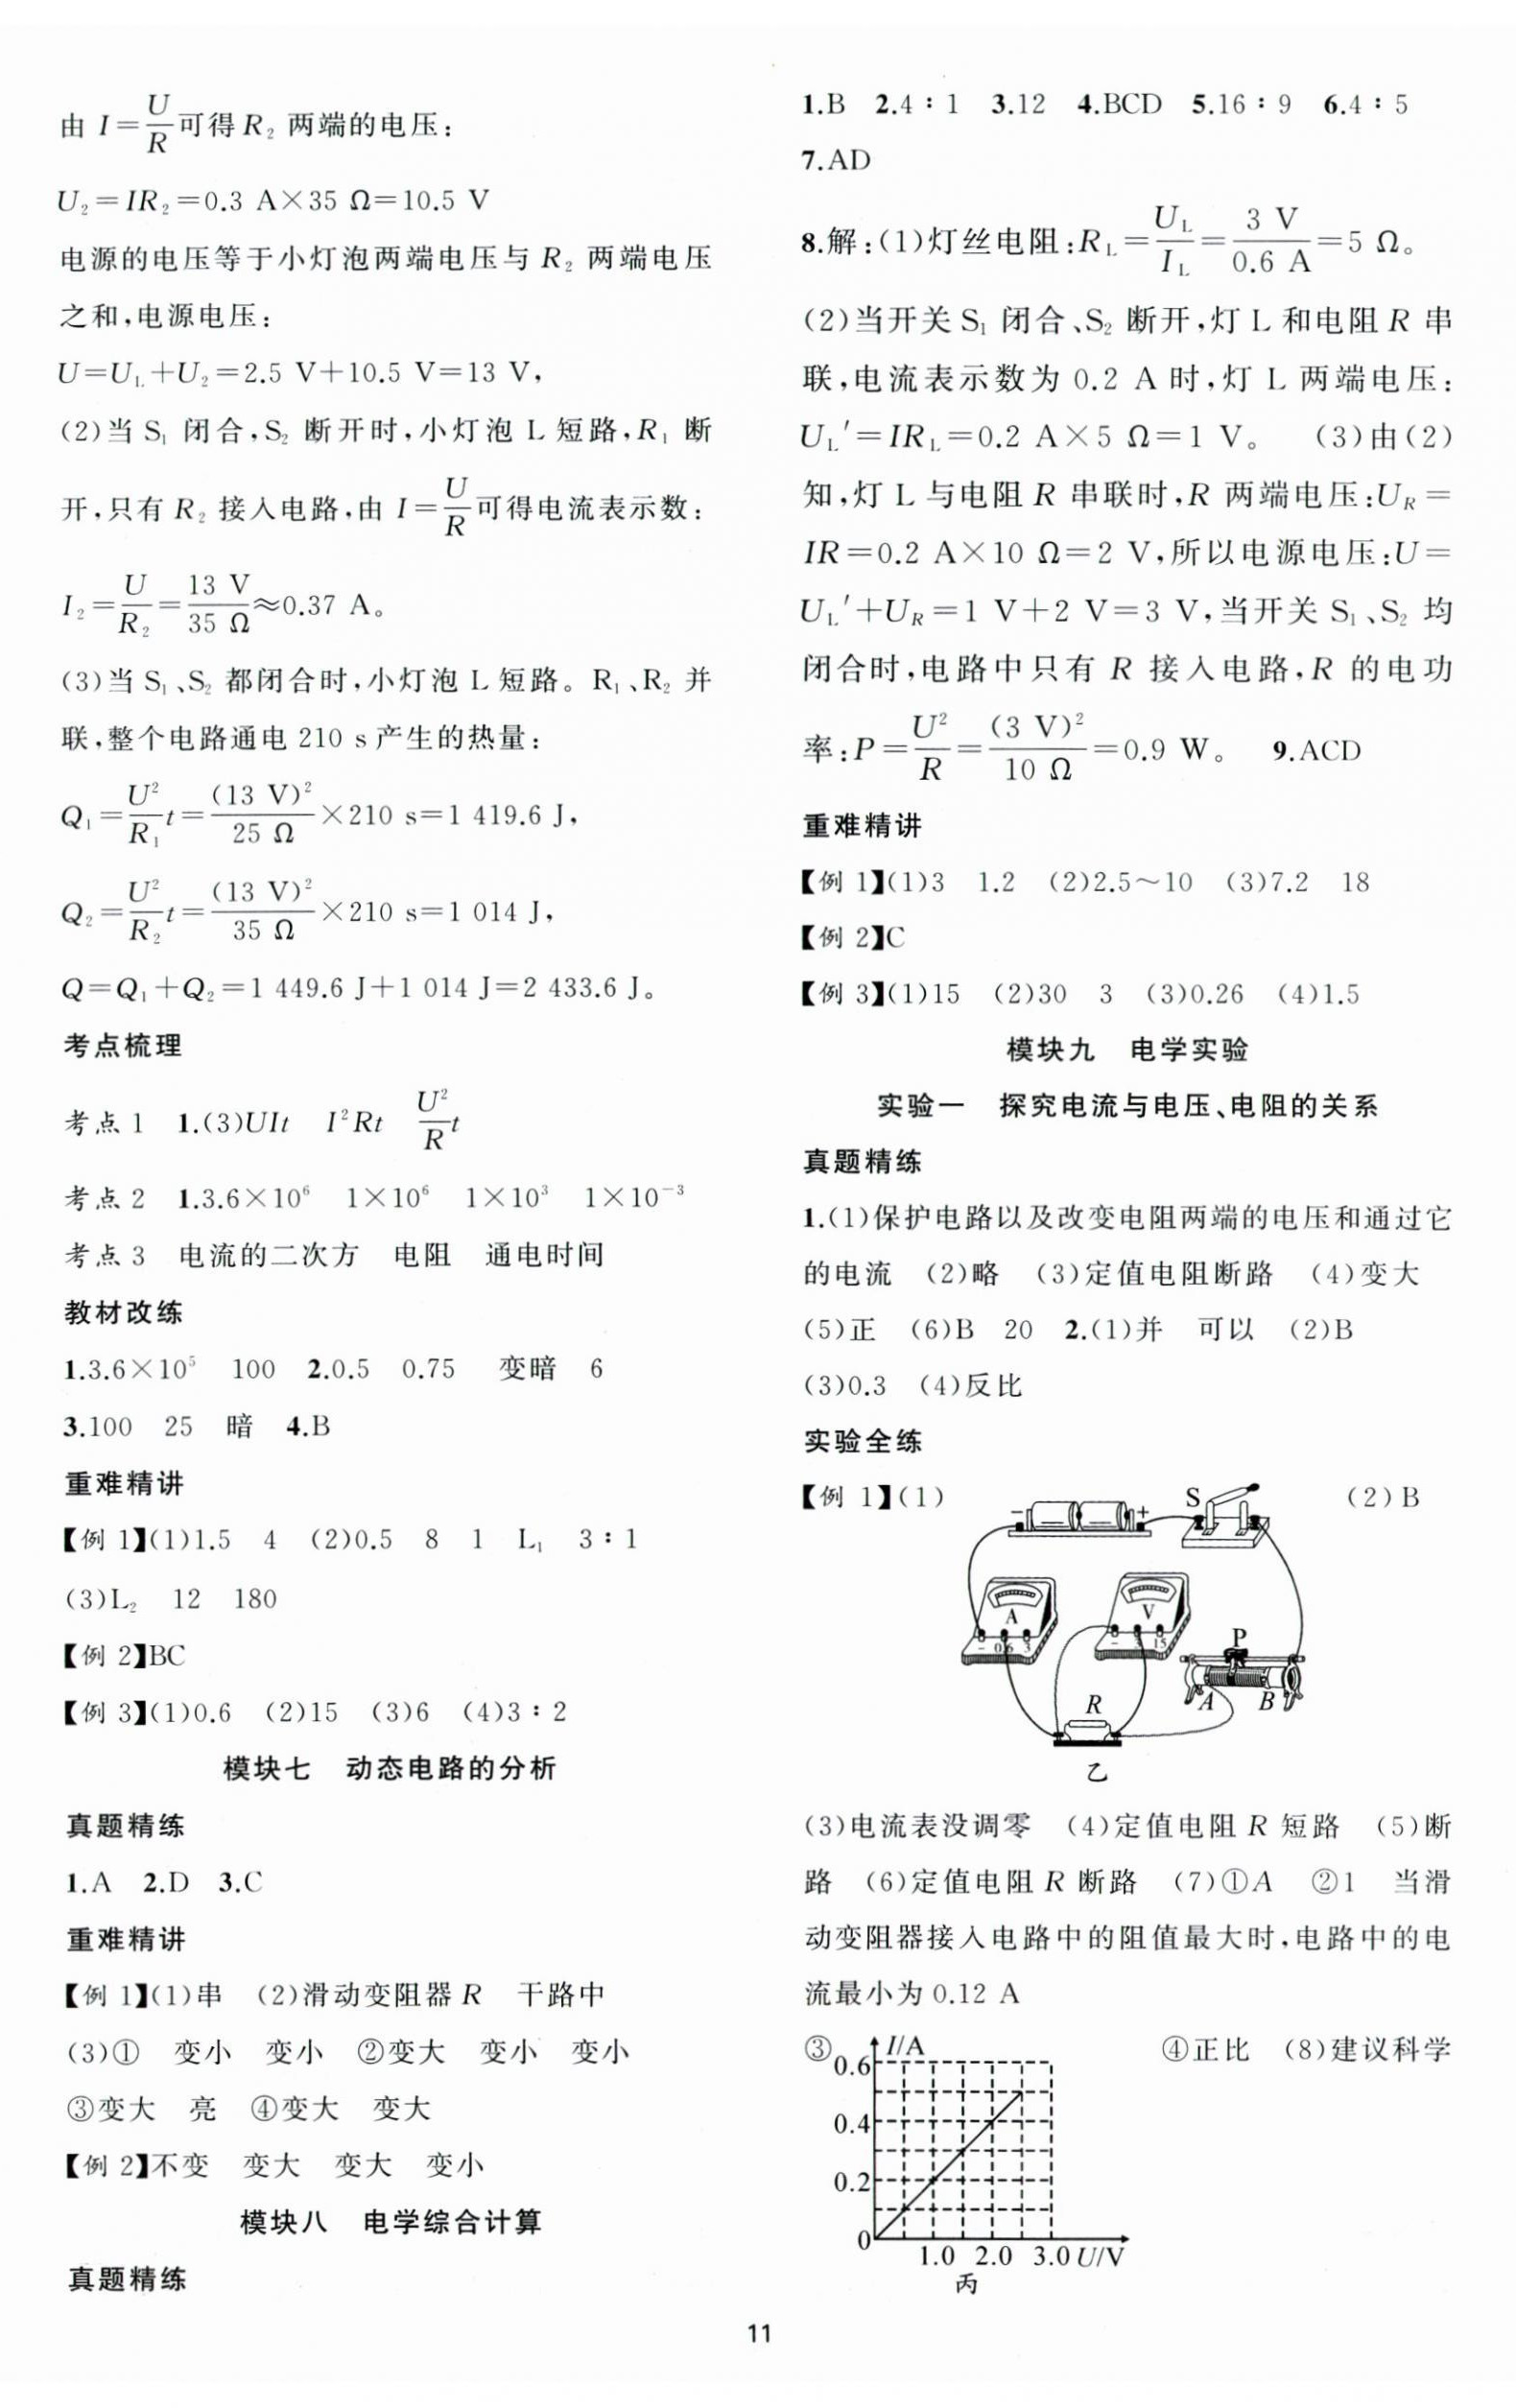 由 I=U/R可得R₂ 两端的电压:
U₂=IR₂=0.3 A×35 Ω=10.5 V
电源的电压等于小灯泡两端电压与 R₂ 两端电压
之和,电源电压:
U=U_L+U₂=2.5 V+10.5 V=13 V,
(2)当 S₁ 闭合,S₂ 断开时,小灯泡 L 短路,R₁ 断
开,只有 R₂ 接入电路,由 I=U/R可得电流表示数:
I₂=U/R₂=13 V/35 Ω≈0.37 A。
(3)当 S₁、S₂ 都闭合时,小灯泡 L 短路。R₁、R₂ 并
联,整个电路通电 210 s 产生的热量:
Q₁=U²/R₁ t=(13 V)²/25 Ω×210 s=1 419.6 J,
Q₂=U²/R₂ t=(13 V)²/35 Ω×210 s=1 014 J,
Q=Q₁+Q₂=1 449.6 J+1 014 J=2 433.6 J。
考点梳理
考点 1 1.(3)UIt I²Rt U²/R t
考点 2 1.3.6×10⁶ 1×10⁶ 1×10³ 1×10⁻³
考点 3 电流的二次方 电阻 通电时间
教材改练
1.3.6×10⁵ 100 2.0.5 0.75 变暗 6
3.100 25 暗 4.B
重难精讲
【例 1】(1)1.5 4 (2)0.5 8 1 L₁ 3∶1
(3)L₂ 12 180
【例 2】BC
【例 3】(1)0.6 (2)15 (3)6 (4)3∶2
模块七 动态电路的分析
真题精练
1.A 2.D 3.C
重难精讲
【例 1】(1)串 (2)滑动变阻器 R 干路中
(3)① 变小 变小 ②变大 变小 变小
③变大 亮 ④变大 变大
【例 2】不变 变大 变大 变小
模块八 电学综合计算
真题精练
1.B 2.4∶1 3.12 4.BCD 5.16∶9 6.4∶5
7.AD
8.解:(1)灯丝电阻:R_L=U_L/I_L=3 V/0.6 A=5 Ω。
(2)当开关 S₁ 闭合、S₂ 断开,灯 L 和电阻 R 串
联,电流表示数为 0.2 A 时,灯 L 两端电压:
U_L′=IR_L=0.2 A×5 Ω=1 V。 (3)由(2)
知,灯 L 与电阻 R 串联时,R 两端电压:U_R=
IR=0.2 A×10 Ω=2 V,所以电源电压:U=
U_L′+U_R=1 V+2 V=3 V,当开关 S₁、S₂ 均
闭合时,电路中只有 R 接入电路,R 的电功
率:P=U²/R=(3 V)²/10 Ω=0.9 W。 9.ACD
重难精讲
【例 1】(1)3 1.2 (2)2.5～10 (3)7.2 18
【例 2】C
【例 3】(1)15 (2)30 3 (3)0.26 (4)1.5
模块九 电学实验
实验一 探究电流与电压、电阻的关系
真题精练
1.(1)保护电路以及改变电阻两端的电压和通过它
的电流 (2)略 (3)定值电阻断路 (4)变大
(5)正 (6)B 20 2.(1)并 可以 (2)B
(3)0.3 (4)反比
实验全练
【例 1】(1) (2)B
− + S
A V
− 0.6 3 − 3 15
P
R A B
乙
(3)电流表没调零 (4)定值电阻 R 短路 (5)断
路 (6)定值电阻 R 断路 (7)①A ②1 当滑
动变阻器接入电路中的阻值最大时,电路中的电
流最小为 0.12 A
③ I/A ④正比 (8)建议科学
0.6
0.4
0.2
0
1.0 2.0 3.0 U/V
丙
11